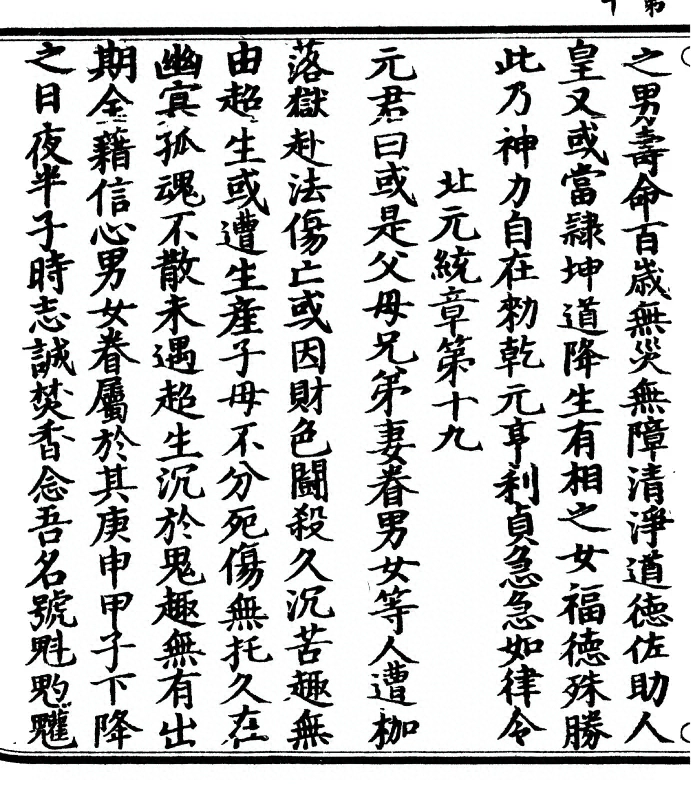 之男壽命百歳無災無障清淨道德佐助人
皇又或當隷坤道降生有相之女福德殊勝
此乃神力自在勑乾元亨利貞急急如律令
北元統章第十九
元君曰或是父母兄弟妻眷男女等人遭枷
落獄赴法傷亡或因財色鬪殺久沉苦趣無
由超生或遭生産子母不分死傷無托久在
幽冥孤魂不散未遇超生沉於鬼趣無有出
期全藉信心男女眷屬於其庚申甲子下降
之日夜半子時志誠焚香念吾名號魁魀